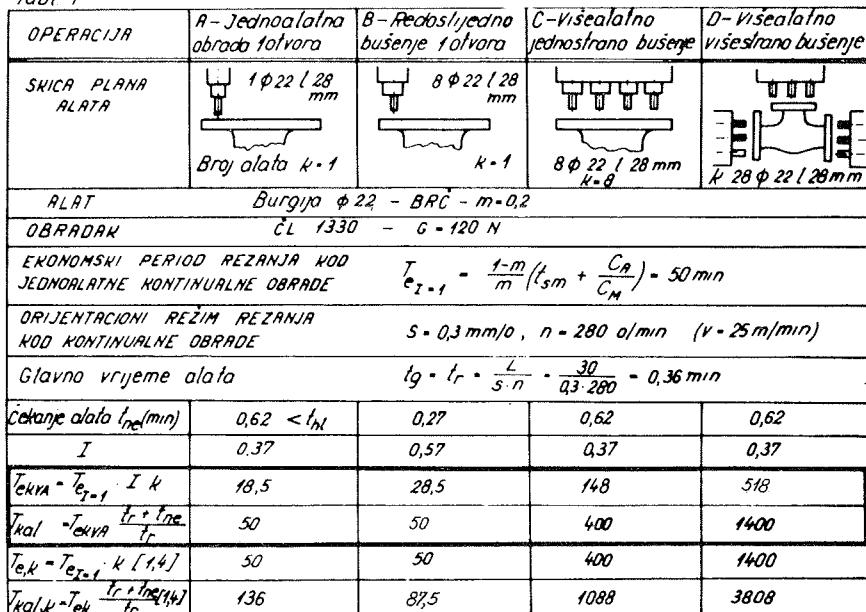 OPERACIJA
A-Jednoalatna obrada 1otvora
B-Redoslijedno bušenje 1otvora
C-Višealatno jednostrano bušenje
D-Višealatno višestrano bušenje
SKICA PLANA ALATA
1ϕ22 l 28 mm
Broj alata k=1
8ϕ22 l 28 mm
k=1
8ϕ 22 l 28 mm
k=8
k 28 ϕ 22 l 28 mm
ALAT
Burgija ϕ 22 - BRČ - m=0,2
OBRADAK
ČL 1330 - G=120 N
EKONOMSKI PERIOD REZANJA KOD
JEDNOALATNE KONTINUALNE OBRADE
T_{e_{I=1}} = \frac{1-m}{m}(t_{sm} + \frac{C_A}{C_M}) = 50 min
ORIJENTACIONI REŽIM REZANJA
KOD KONTINUALNE OBRADE
S = 0,3 mm/o, n = 280 o/min (v = 25 m/min)
Glavno vrijeme alata
tg = tr = \frac{L}{s·n} = \frac{30}{0,3·280} = 0,36 min
Čekanje alata t_{ne}(min) 0,62 < t_{hl} 0,27 0,62 0,62
I 0.37 0,57 0,37 0,37
T_{ekvA} = T_{e_{I=1}} · I k 18,5 28,5 148 518
T_{kal} = T_{ekvA} \frac{t_r + t_{ne}}{t_r} 50 50 400 1400
T_{e,k} = T_{e_{I=1}} · k [1,4] 50 50 400 1400
T_{kal,k} = T_{ek} \frac{t_r + t_{ne}}{t_r} [1,4] 136 87,5 1088 3808